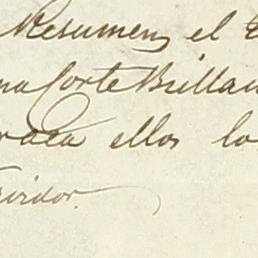 Resumen, el
na Corte Brillan
para ellos lo
rvidor.